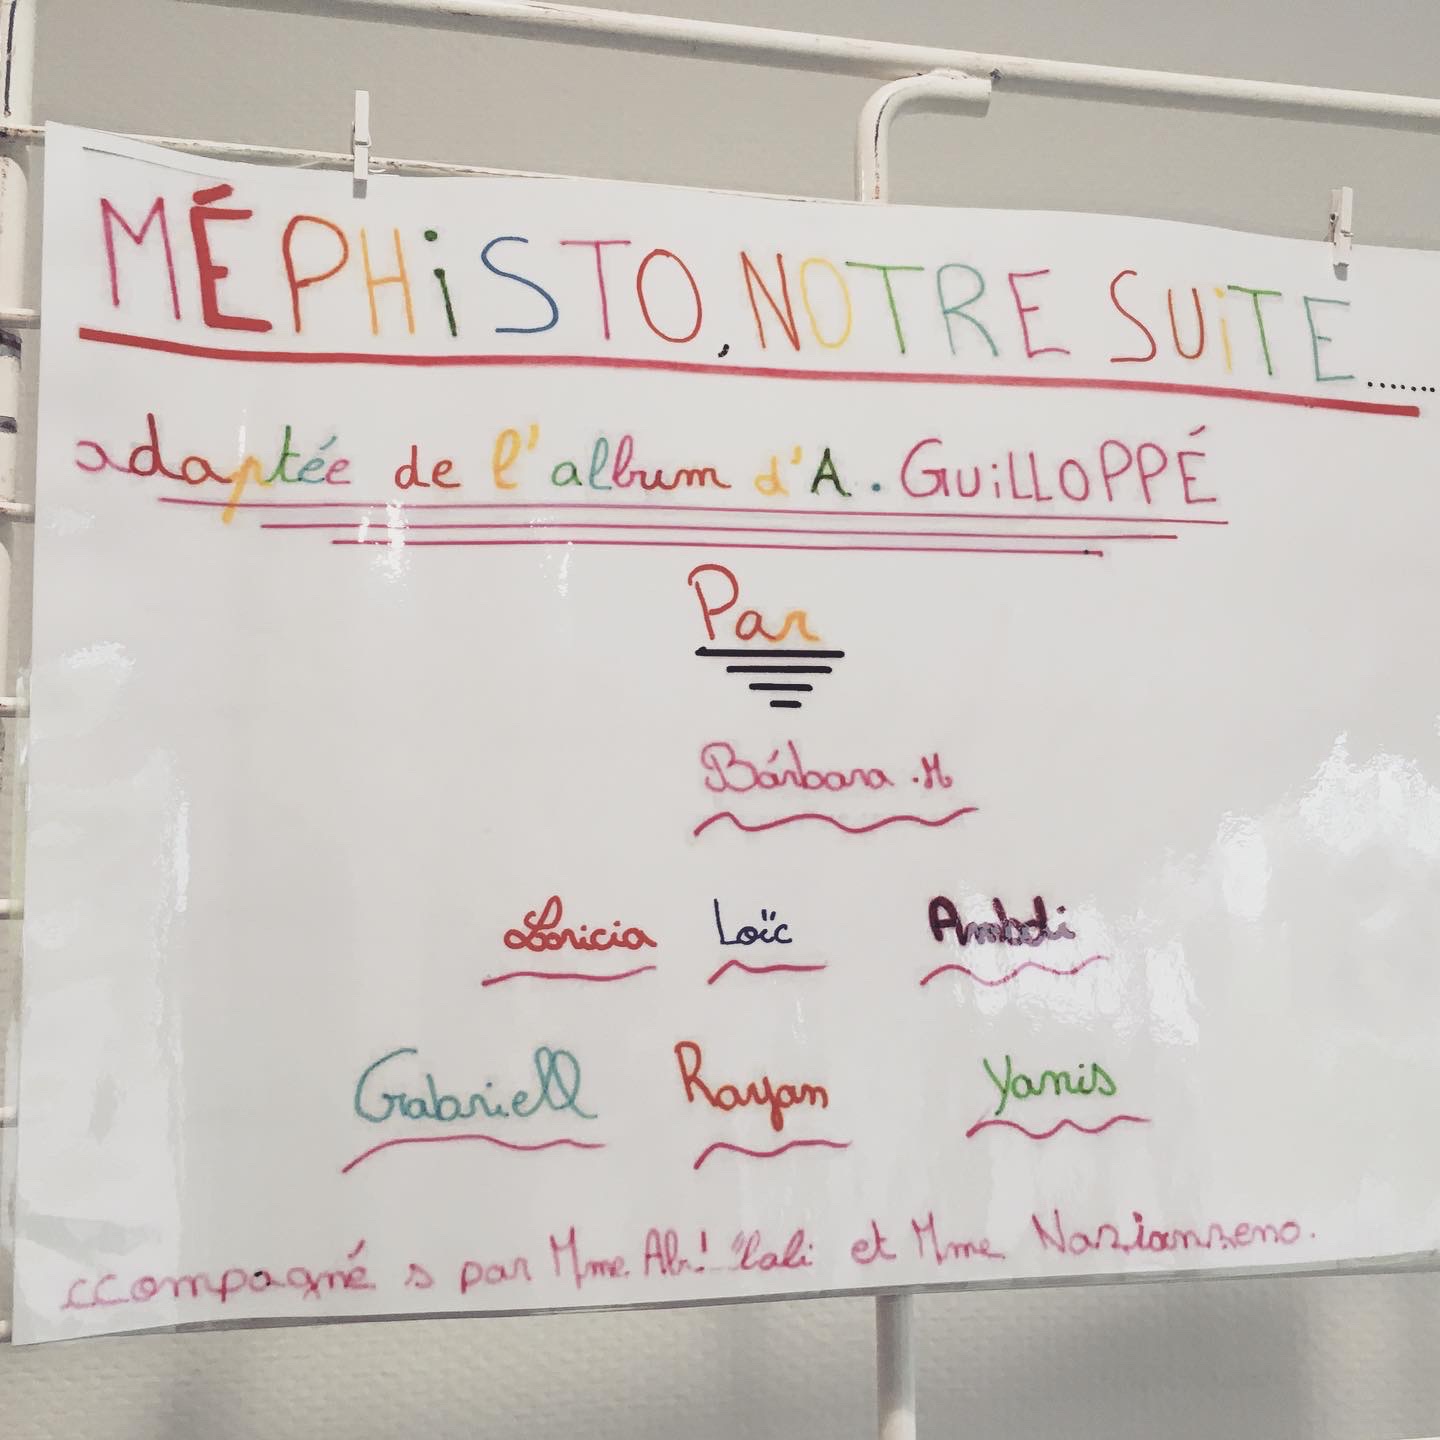 MÉPHiSTO, NOTRE SUiTE.......
adaptée de l'album d'A. GUiLLOPPÉ
Par
Bárbara .M
Loricia Loïc Ambdi
Gabriell Rayan Yanis
ccompagné s par Mme et Mme Nazianzeno.